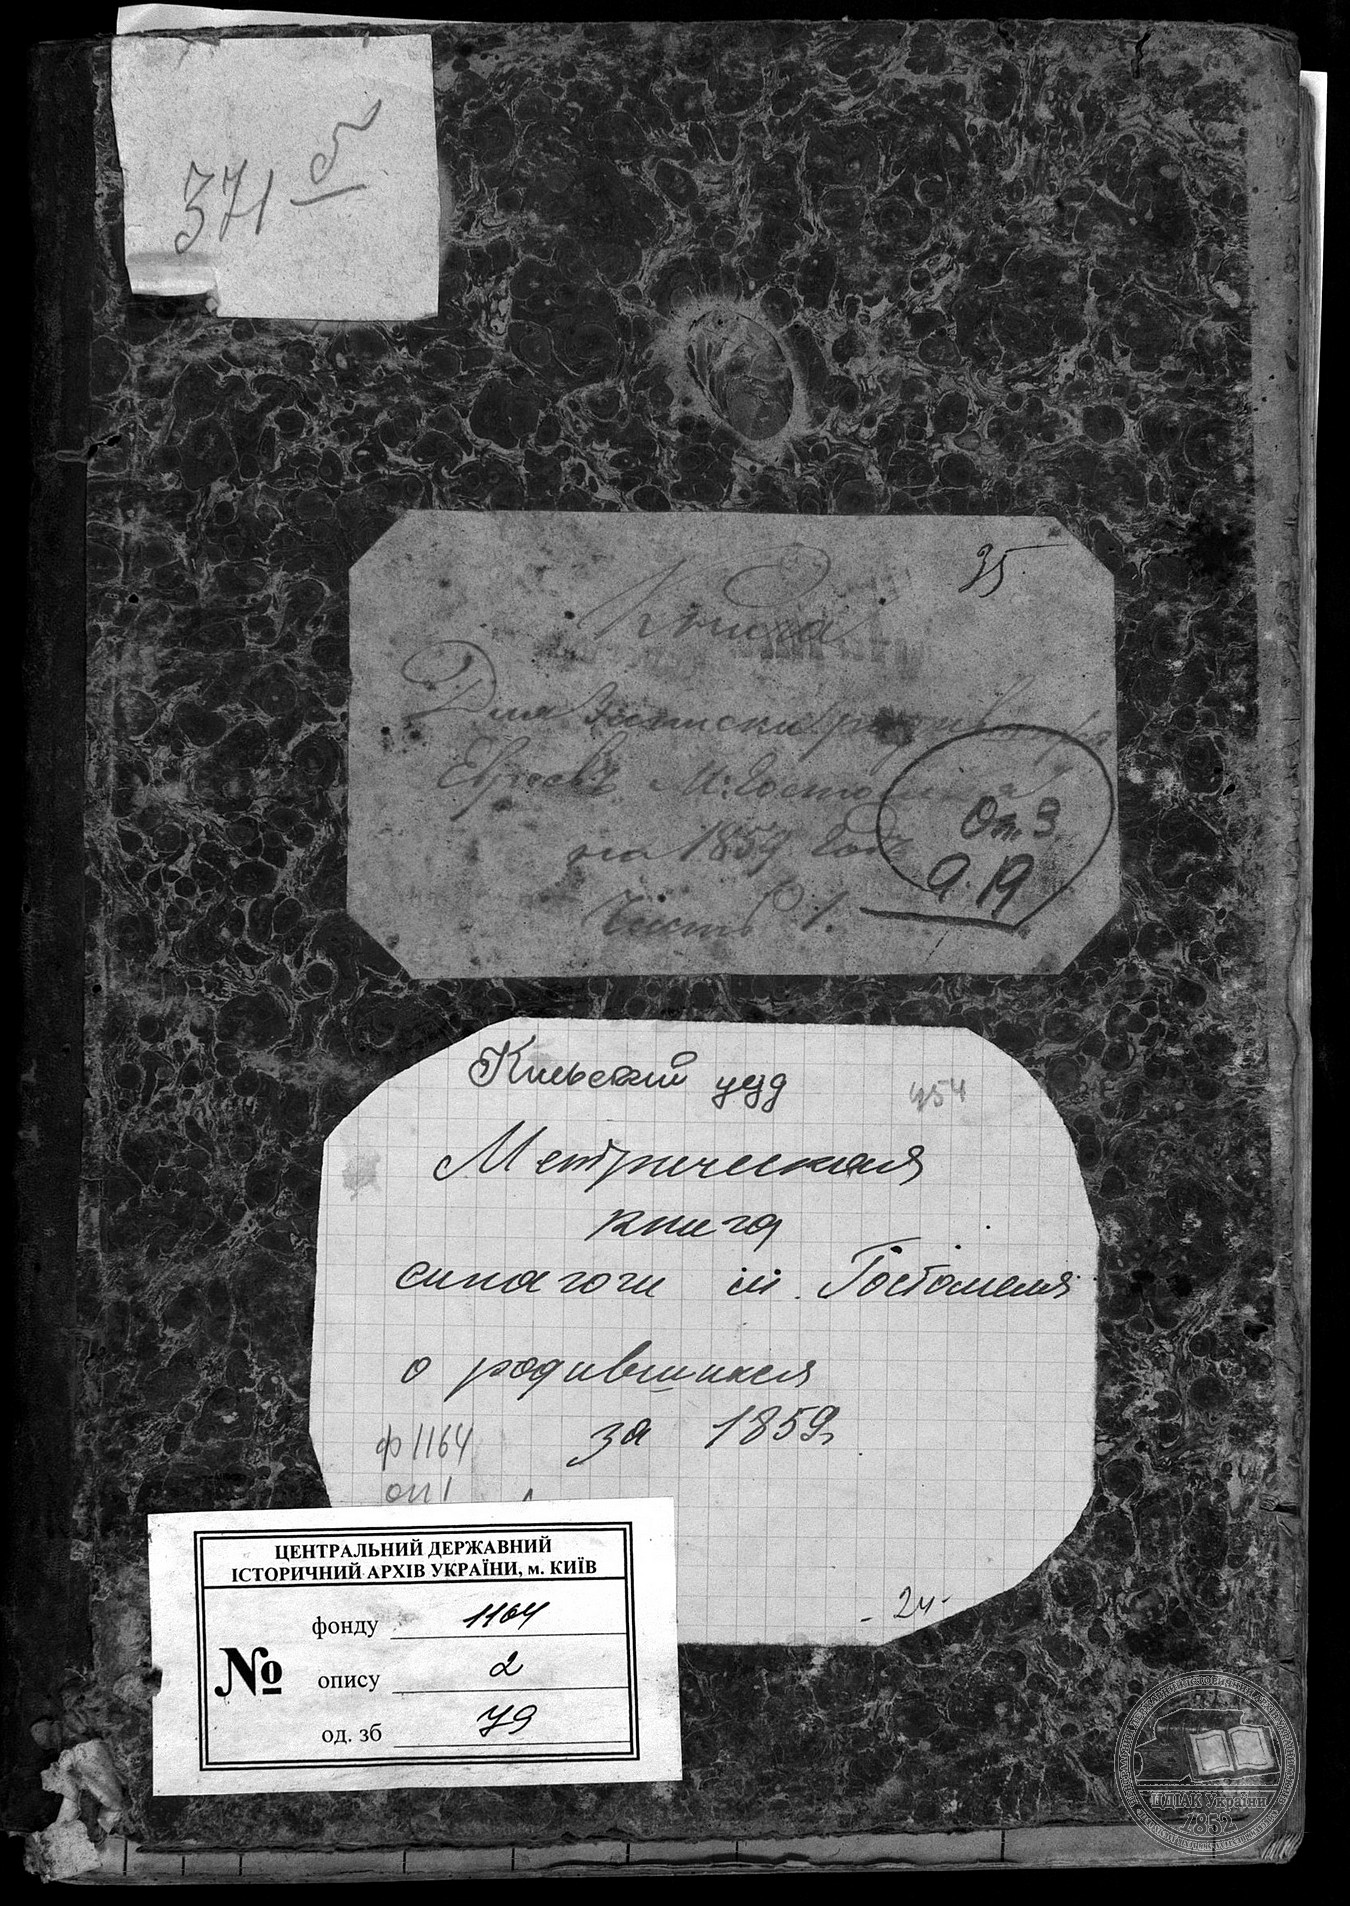 371 б
35
Книга
Для Записки
Евреевъ М: Гостомля
на 1859 Годъ
Часть 1.
Оп. 3
9. 19
Киевский уезд
454
Метрическая
книга
синагоги м. Гостомеля
о родившихся
за 1859г
ф 1164
оп 1
- 24 -
ЦЕНТРАЛЬНИЙ ДЕРЖАВНИЙ
ІСТОРИЧНИЙ АРХІВ УКРАЇНИ, м. КИЇВ
№
фонду 1164
опису 2
од. зб 79
ЦДІАК України
1852